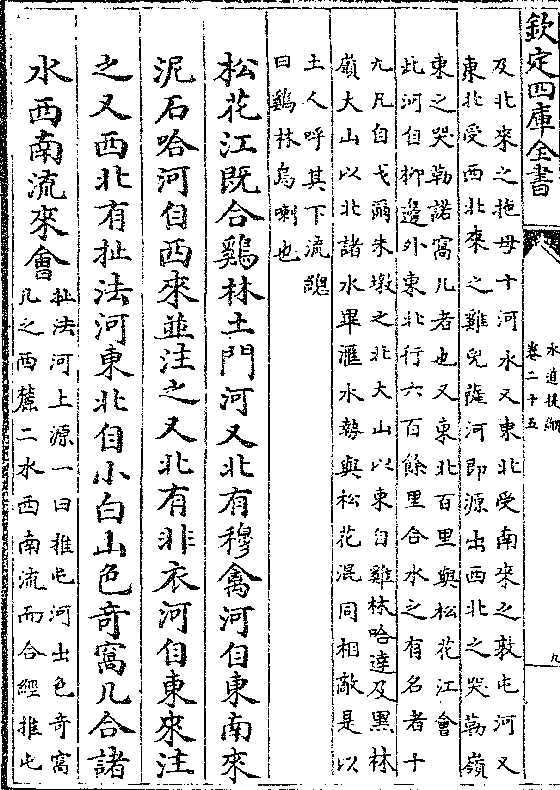 欽定四庫全書
水道提綱
卷二十五
九
及北來之拖母十河水又東北受南來之敦屯河又
東北受西北來之雞兒薩河即源出西北之哭勒嶺
東之哭勒諾窩几者也又東北百里與松花江會
此河自柳邊外東北行六百餘里合水之有名者十
九凡自弋爾朱墩之北大山以東自雞林哈達及黑林
嶺大山以北諸水畢滙水勢與松花混同相敵是以
土人呼其下流總
曰雞林烏喇也
松花江既合雞林土門河又北有穆禽河自東南來
泥石哈河自西來並注之又北有非衣河自東來注
之又西北有扯法河東北自小白山色奇窩几合諸
水西南流來會
扯法河上源一曰推屯河出色奇窩
几之西麓二水西南流而合經推屯